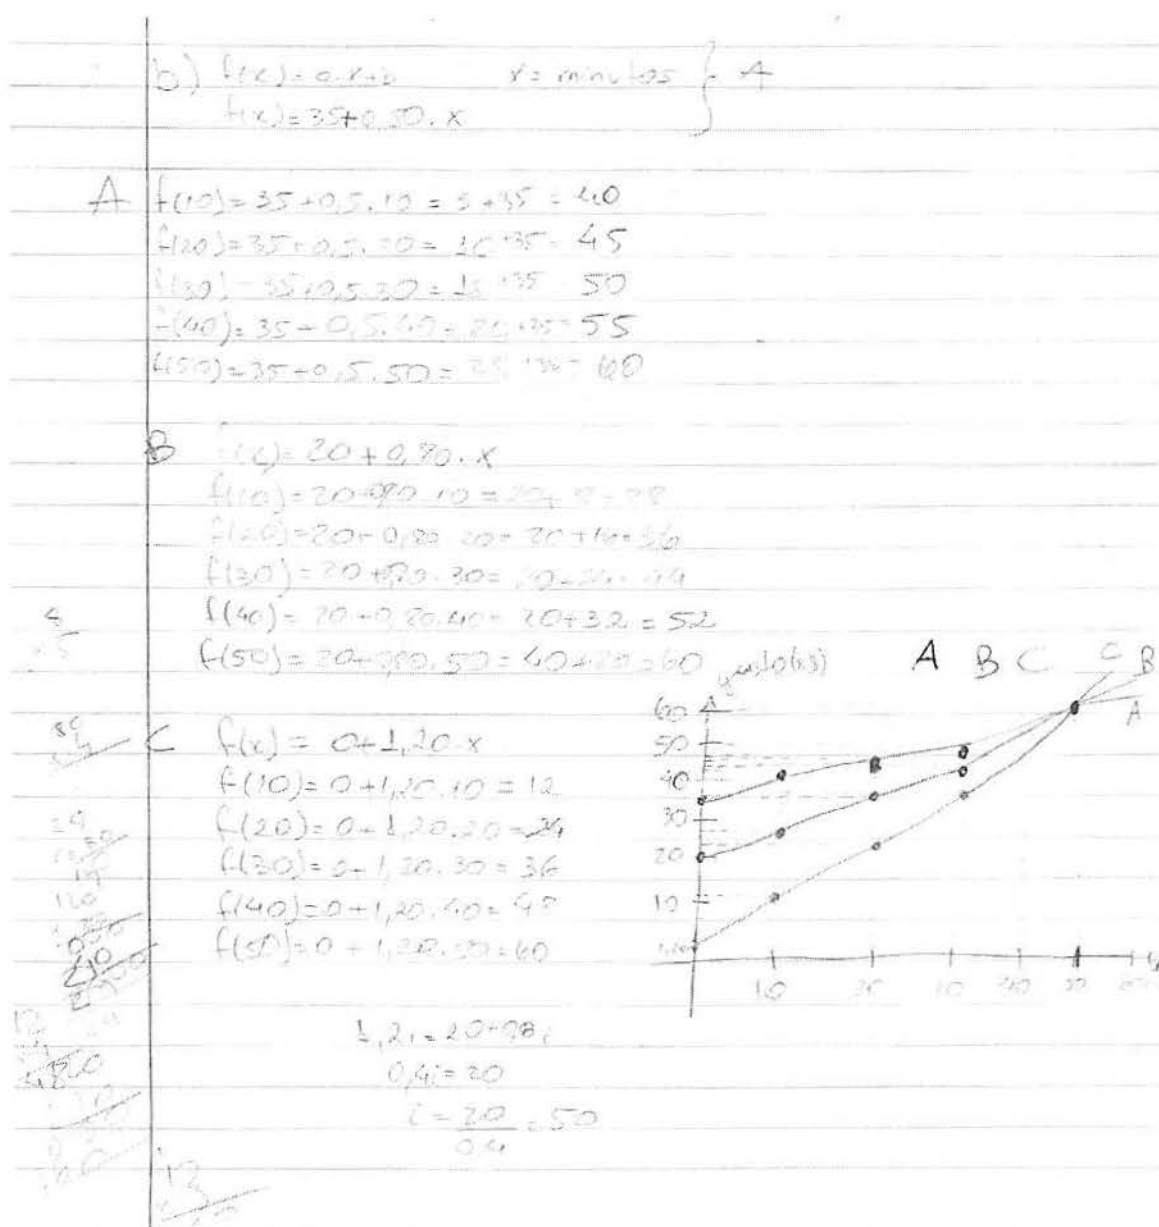 b) f(x) = a.x+b x = minutos } A
f(x) = 35+0,50.x
A f(10) = 35+0,5.10 = 5+35 = 40
f(20) = 35+0,5.20 = 10+35 = 45
f(30) = 35+0,5.30 = 15+35 50
f(40) = 35+0,5.40 = 20+35 = 55
f(50) = 35+0,5.50 = 25+35 = 60
B f(x) = 20+0,80.x
f(10) = 20+0,80.10 = 20+8 = 28
f(20) = 20+0,80.20 = 20+16 = 36
f(30) = 20+0,80.30 = 20+24 = 44
f(40) = 20+0,80.40 = 20+32 = 52
f(50) = 20+0,80.50 = 40+20 = 60
A B C
C
B
A
C f(x) = 0+1,20.x
f(10) = 0+1,20.10 = 12
f(20) = 0+1,20.20 = 24
f(30) = 0+1,20.30 = 36
f(40) = 0+1,20.40 = 48
f(50) = 0+1,20.50 = 60
60
50
40
30
20
10
10 20 30 40 50
1,2i = 20+0,8i
0,4i = 20
i = 20 = 50
0,4